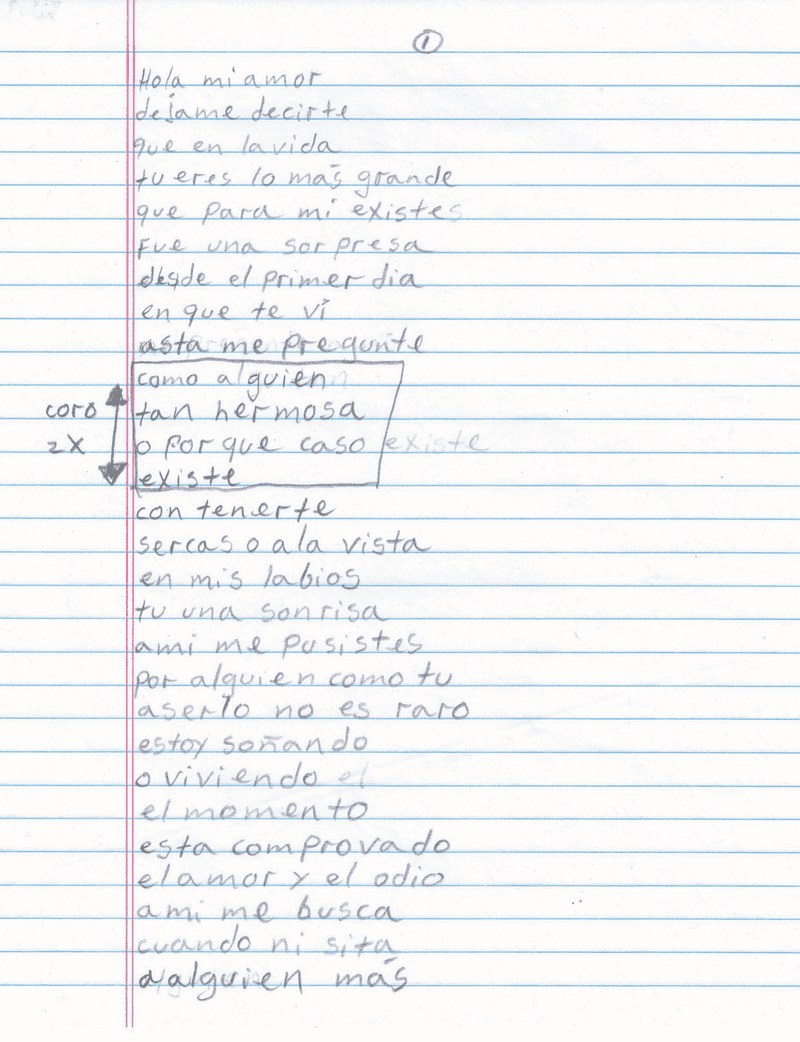 1
Hola mi amor
dejame decirte
que en la vida
tu eres lo más grande
que para mi existes
Fue una sorpresa
desde el primer dia
en que te ví
asta me pregunte
como alguien
tan hermosa
coro
2X
o por que caso existe
existe
con tenerte
sercas o a la vista
en mis labios
tu una sonrisa
ami me pusistes
por alguien como tu
aserlo no es raro
estoy soñando
o viviendo el
el momento
esta comprovado
el amor y el odio
ami me busca
cuando ni sita
a alguien más